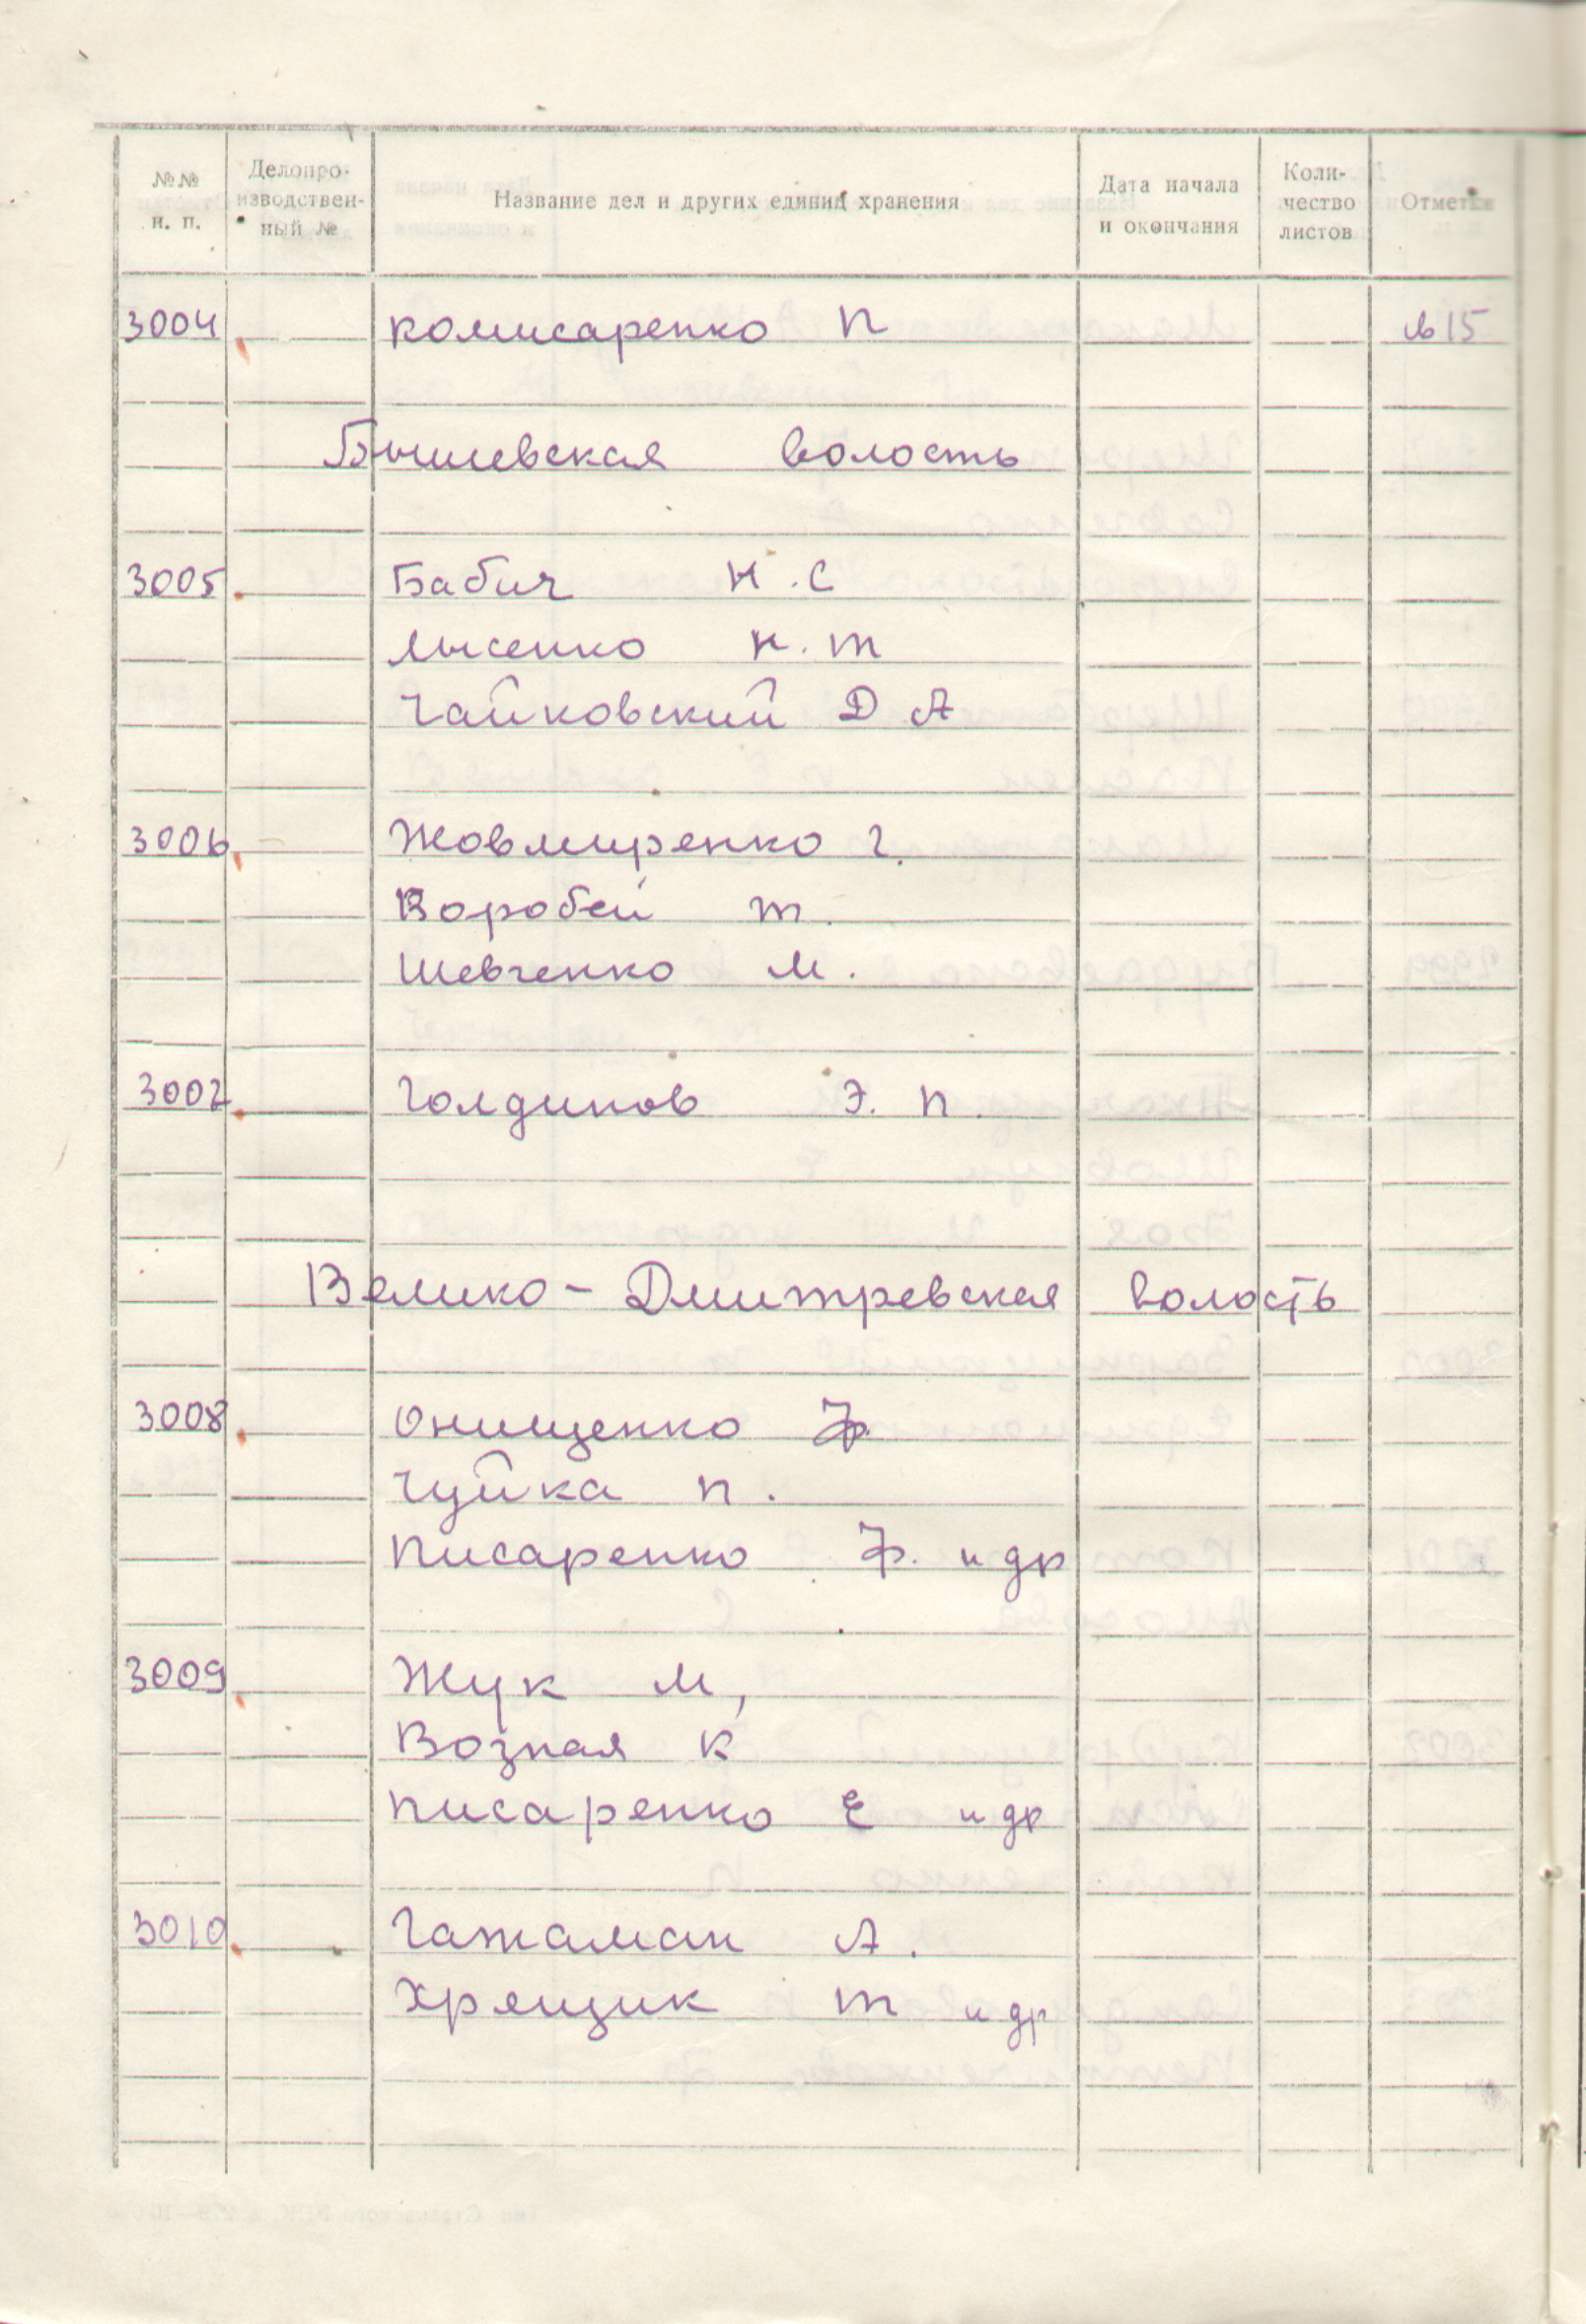 №№ п. п. Делопро-изводствен-ный № Название дел и других единиц хранения Дата начала и окончания Коли-чество листов Отметка
3004 Комисаренко П в 15
Бышевская волость
3005 Бабич Н.С
Лысенко Н.Т
Чайковский Д А
3006 Жовмиренко Г.
Воробей Т.
Шевченко М.
3007 Голдинов Э. П.
Велико-Дмитревская волость
3008 Онищенко Ф
Чуйка П.
Писаренко Ф. и др
3009 Жук М,
Возная К
Писаренко Е и др
3010 Гатаман А.
Хрящик Т и др